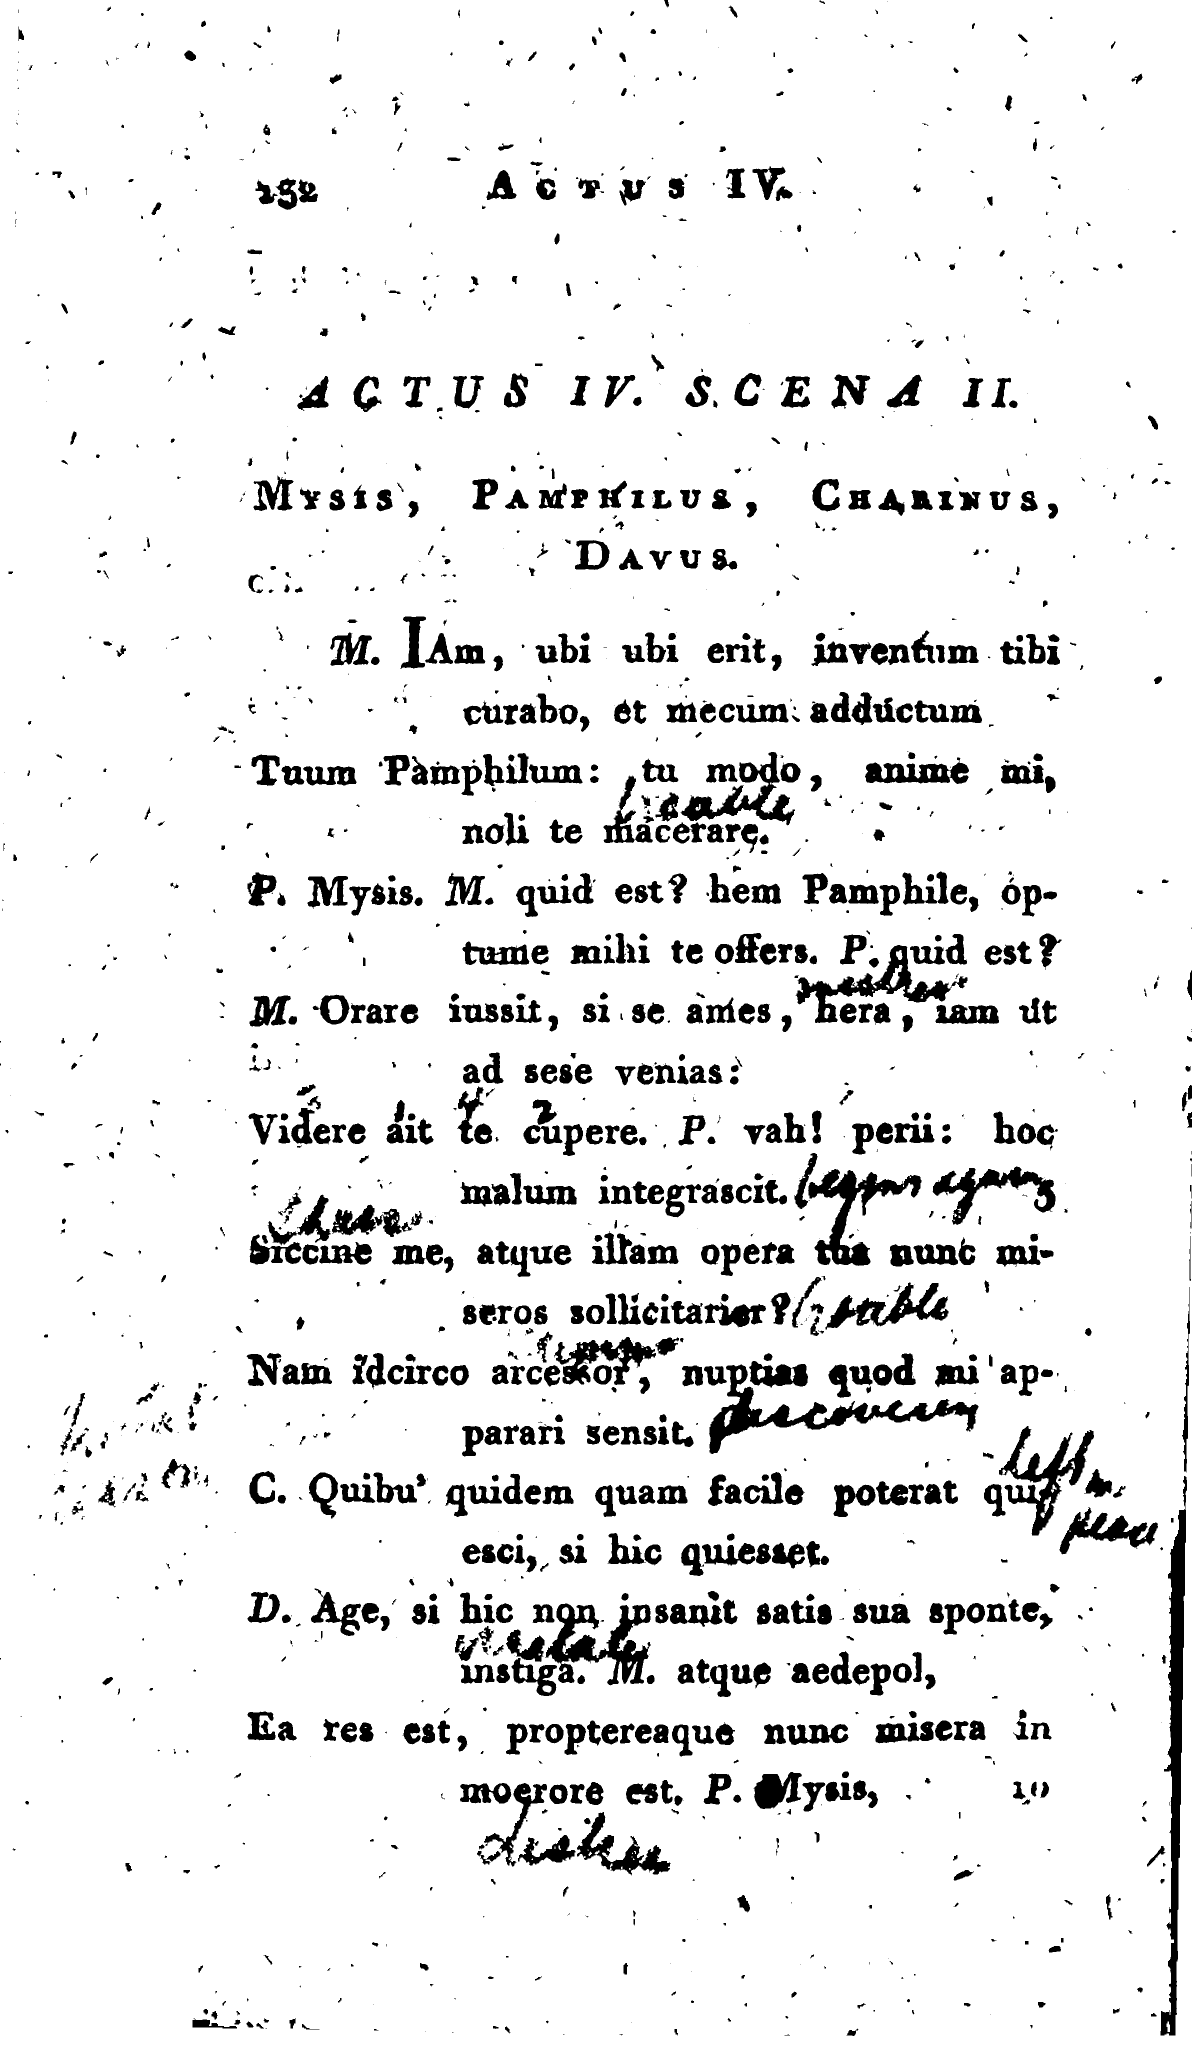 152 ACTUS IV.
ACTUS IV. SCENA II.
MYSIS, PAMPHILUS, CHARINUS,
DAVUS.
M. IAm, ubi ubi erit, inventum tibi
curabo, et mecum adductum
Tuum Pamphilum: tu modo, anime mi,
trouble
noli te macerare.
P. Mysis. M. quid est? hem Pamphile, op-
tume mihi te offers. P. quid est?
mistress
M. Orare iussit, si se ames, hera, iam ut
ad sese venias:
3 1 4 2
Videre ait te cupere. P. vah! perii: hoc
malum integrascit. begins again
Siccine me, atque illam opera tua nunc mi-
seros sollicitarier? trouble
Nam idcirco arcessor, nuptias quod mi ap-
parari sensit. discovering
left in
C. Quibu' quidem quam facile poterat qui-
peace
esci, si hic quiesset.
D. Age, si hic non insanit satis sua sponte,
instiga. M. atque aedepol,
Ea res est, proptereaque nunc misera in
moerore est. P. Mysis, 10